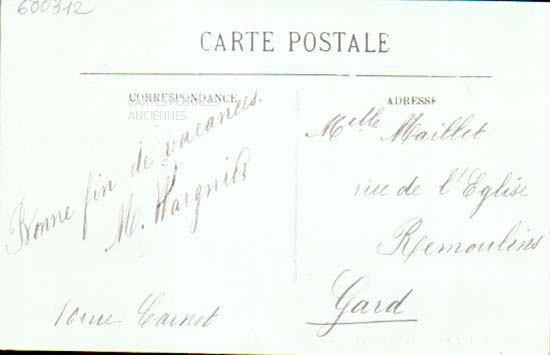 600312
CARTE POSTALE
CORRESPONDANCE
CARTES POSTALES
ANCIENNES
Bonne fin de vacances.
M. Wargnies
10 rue Carnot
ADRESSE
Melle Maillet
rue de l'Eglise
Remoulins
Gard